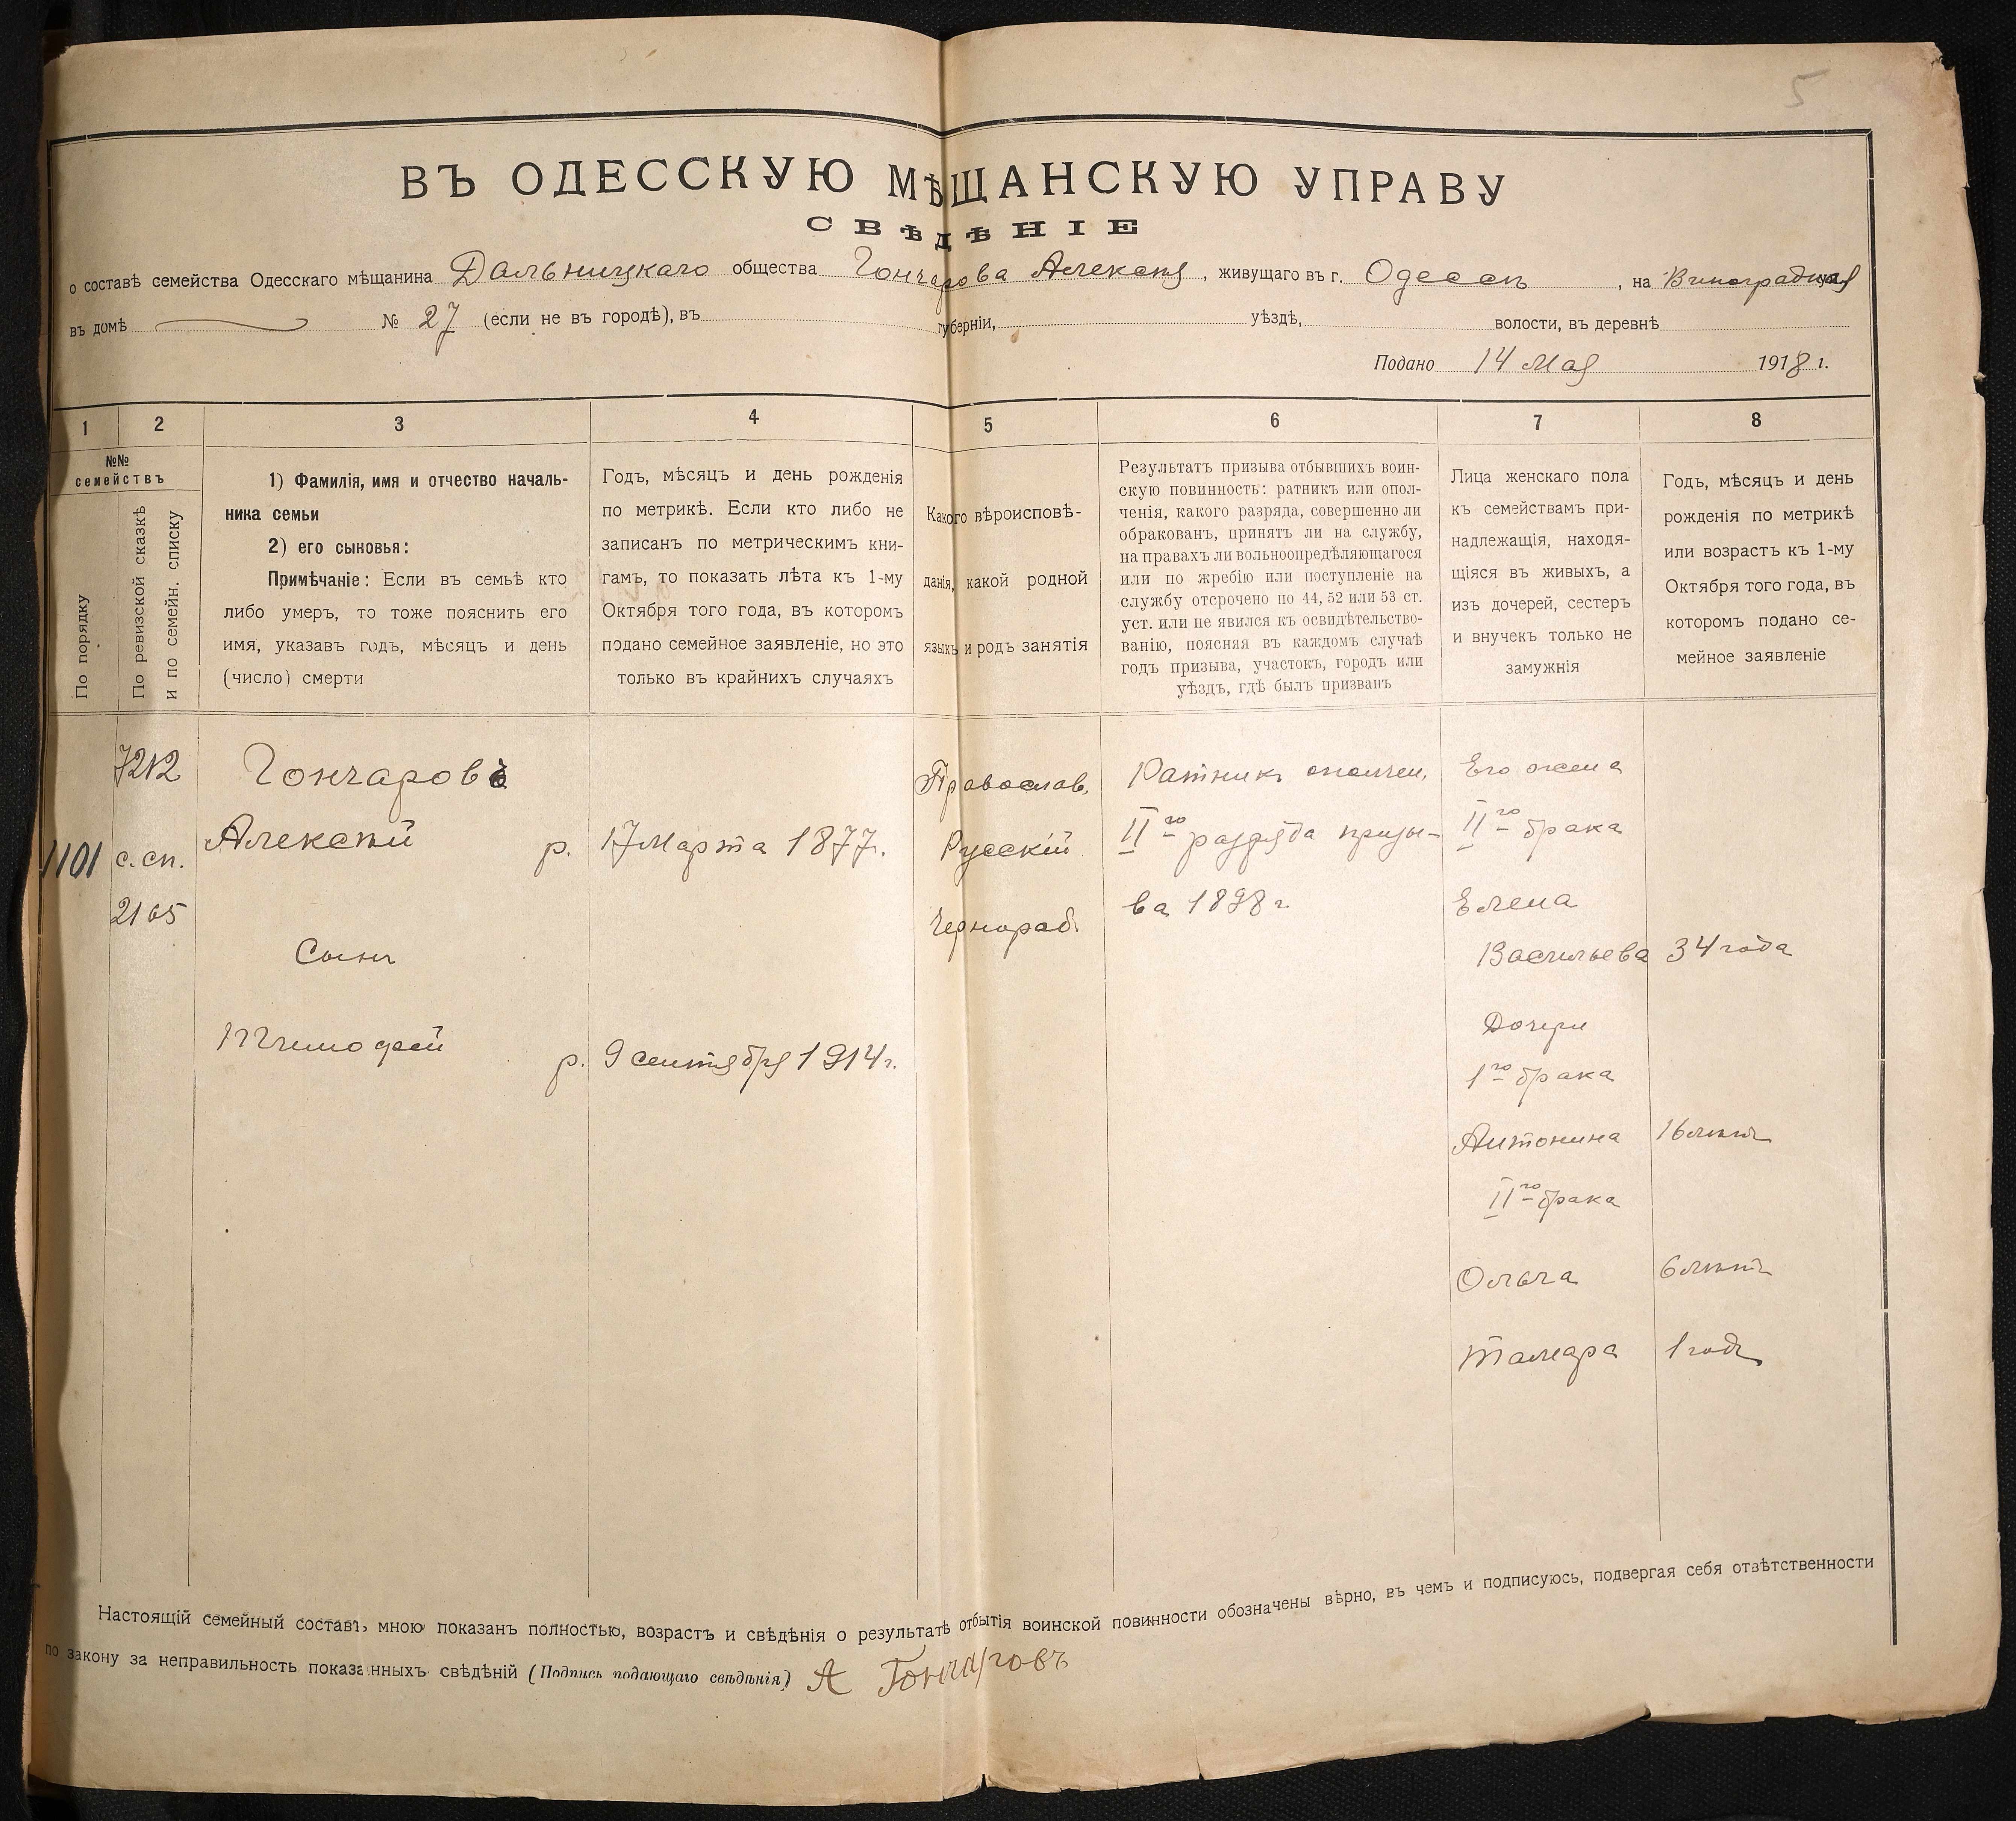 5
ВЪ ОДЕССКУЮ МѢЩАНСКУЮ УПРАВУ
СВѢДѢНІЕ
о составѣ семейства Одесскаго мѣщанина Дальницкаго общества Гончарова Алексѣя, живущаго въ г. Одессѣ, на Виноградная
въ домѣ № 27 (если не въ городѣ), въ губерніи, уѣздѣ, волости, въ деревнѣ
Подано 14 Мая 1918 г.
1 2 3 4 5 6 7 8
№№
семействъ
По порядку
По ревизской сказкѣ
и по семейн. списку
1) Фамилія, имя и отчество началь-
ника семьи
2) его сыновья:
Примѣчаніе: Если въ семьѣ кто
либо умеръ, то тоже пояснить его
имя, указавъ годъ, мѣсяцъ и день
(число) смерти
Годъ, мѣсяцъ и день рожденія
по метрикѣ. Если кто либо не
записанъ по метрическимъ кни-
гамъ, то показать лѣта къ 1-му
Октября того года, въ которомъ
подано семейное заявленіе, но это
только въ крайнихъ случаяхъ
Какого вѣроисповѣ-
данія, какой родной
языкъ и родъ занятія
Результатъ призыва отбывшихъ воин-
скую повинность: ратникъ или опол-
ченія, какого разряда, совершенно ли
обракованъ, принятъ ли на службу,
на правахъ ли вольноопредѣляющагося
или по жребію или поступленіе на
службу отсрочено по 44, 52 или 53 ст.
уст. или не явился къ освидѣтельство-
ванію, поясняя въ каждомъ случаѣ
годъ призыва, участокъ, городъ или
уѣздъ, гдѣ былъ призванъ
Лица женскаго пола
къ семействамъ при-
надлежащія, находя-
щіяся въ живыхъ, а
изъ дочерей, сестеръ
и внучекъ только не
замужнія
Годъ, мѣсяцъ и день
рожденія по метрикѣ
или возрастъ къ 1-му
Октября того года, въ
которомъ подано се-
мейное заявленіе
1101
7212
с. сп.
2165
Гончаровъ
Алексѣй р.
Сынъ
Тимофей р.
17 Марта 1877 г.
9 сентября 1914 г.
Православ.
Русскій
Чернораб.
Ратникъ ополчен.
II го разряда призы-
ва 1898 г.
Его жена
II го брака
Елена
Васильева 34 года
Дочери
1 го брака
Антонина 16 лѣтъ
II го брака
Ольга 6 лѣтъ
Тамара 1 годъ
Настоящій семейный составъ, мною показанъ полностью, возрастъ и свѣдѣнія о результатѣ отбытія воинской повинности обозначены вѣрно, въ чемъ и подписуюсь, подвергая себя отвѣтственности
по закону за неправильность показанныхъ свѣдѣній (Подпись подающаго свѣдѣнія) А Гончаровъ